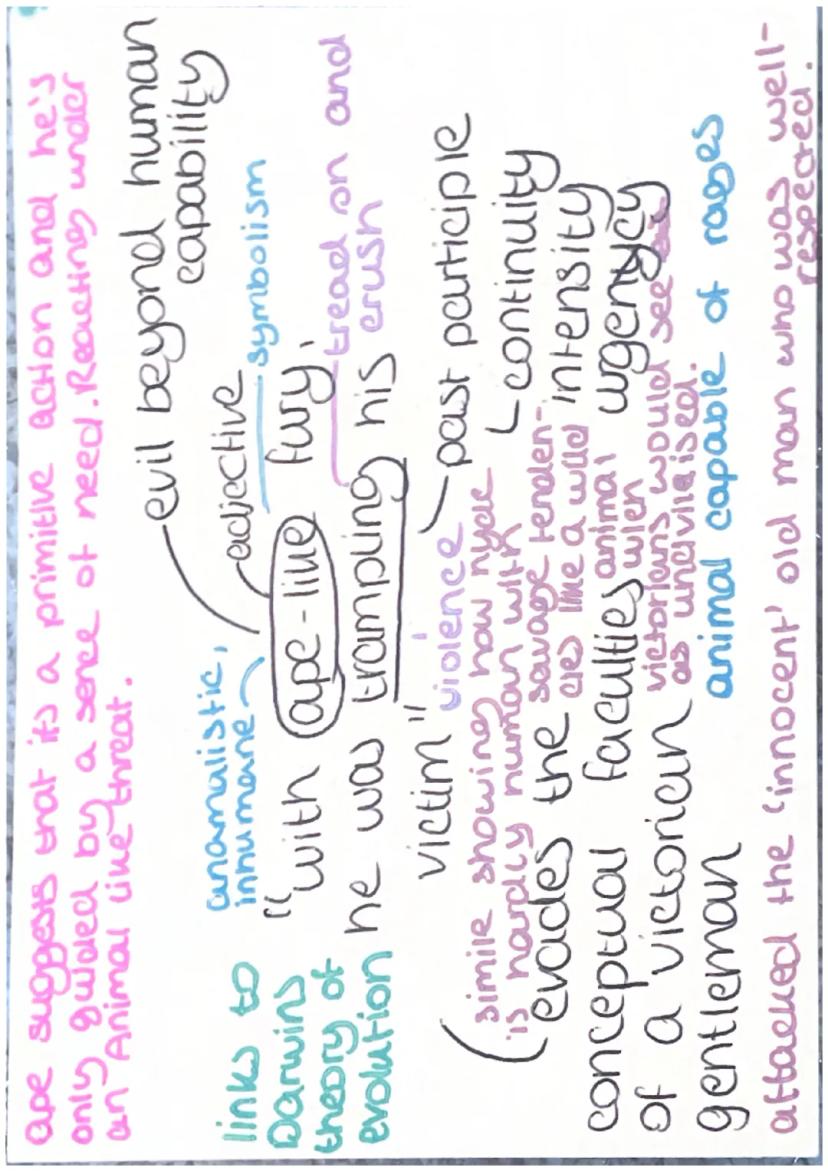 ape suggests that its a primitive action and he's
only guided by a sence of need. Reacting under
an Animal like threat.
evil beyond human
capability
adjective
symbolism
anamalistic,
inhumane
links to
Darwins
theory of
evolution
"with ape-like fury,
he was trampling his
victim"
tread on and
crush
violence
past participle
continuity
intensity
urgency
simile showing how hyde
is hardly human with
savage tenden-
cies like a wild
animal
victorians would see
as uncivilised.
evades the
conceptual faculties
of a victorian
gentleman
animal capable of rages
attacked the 'innocent' old man who was well-
respected.